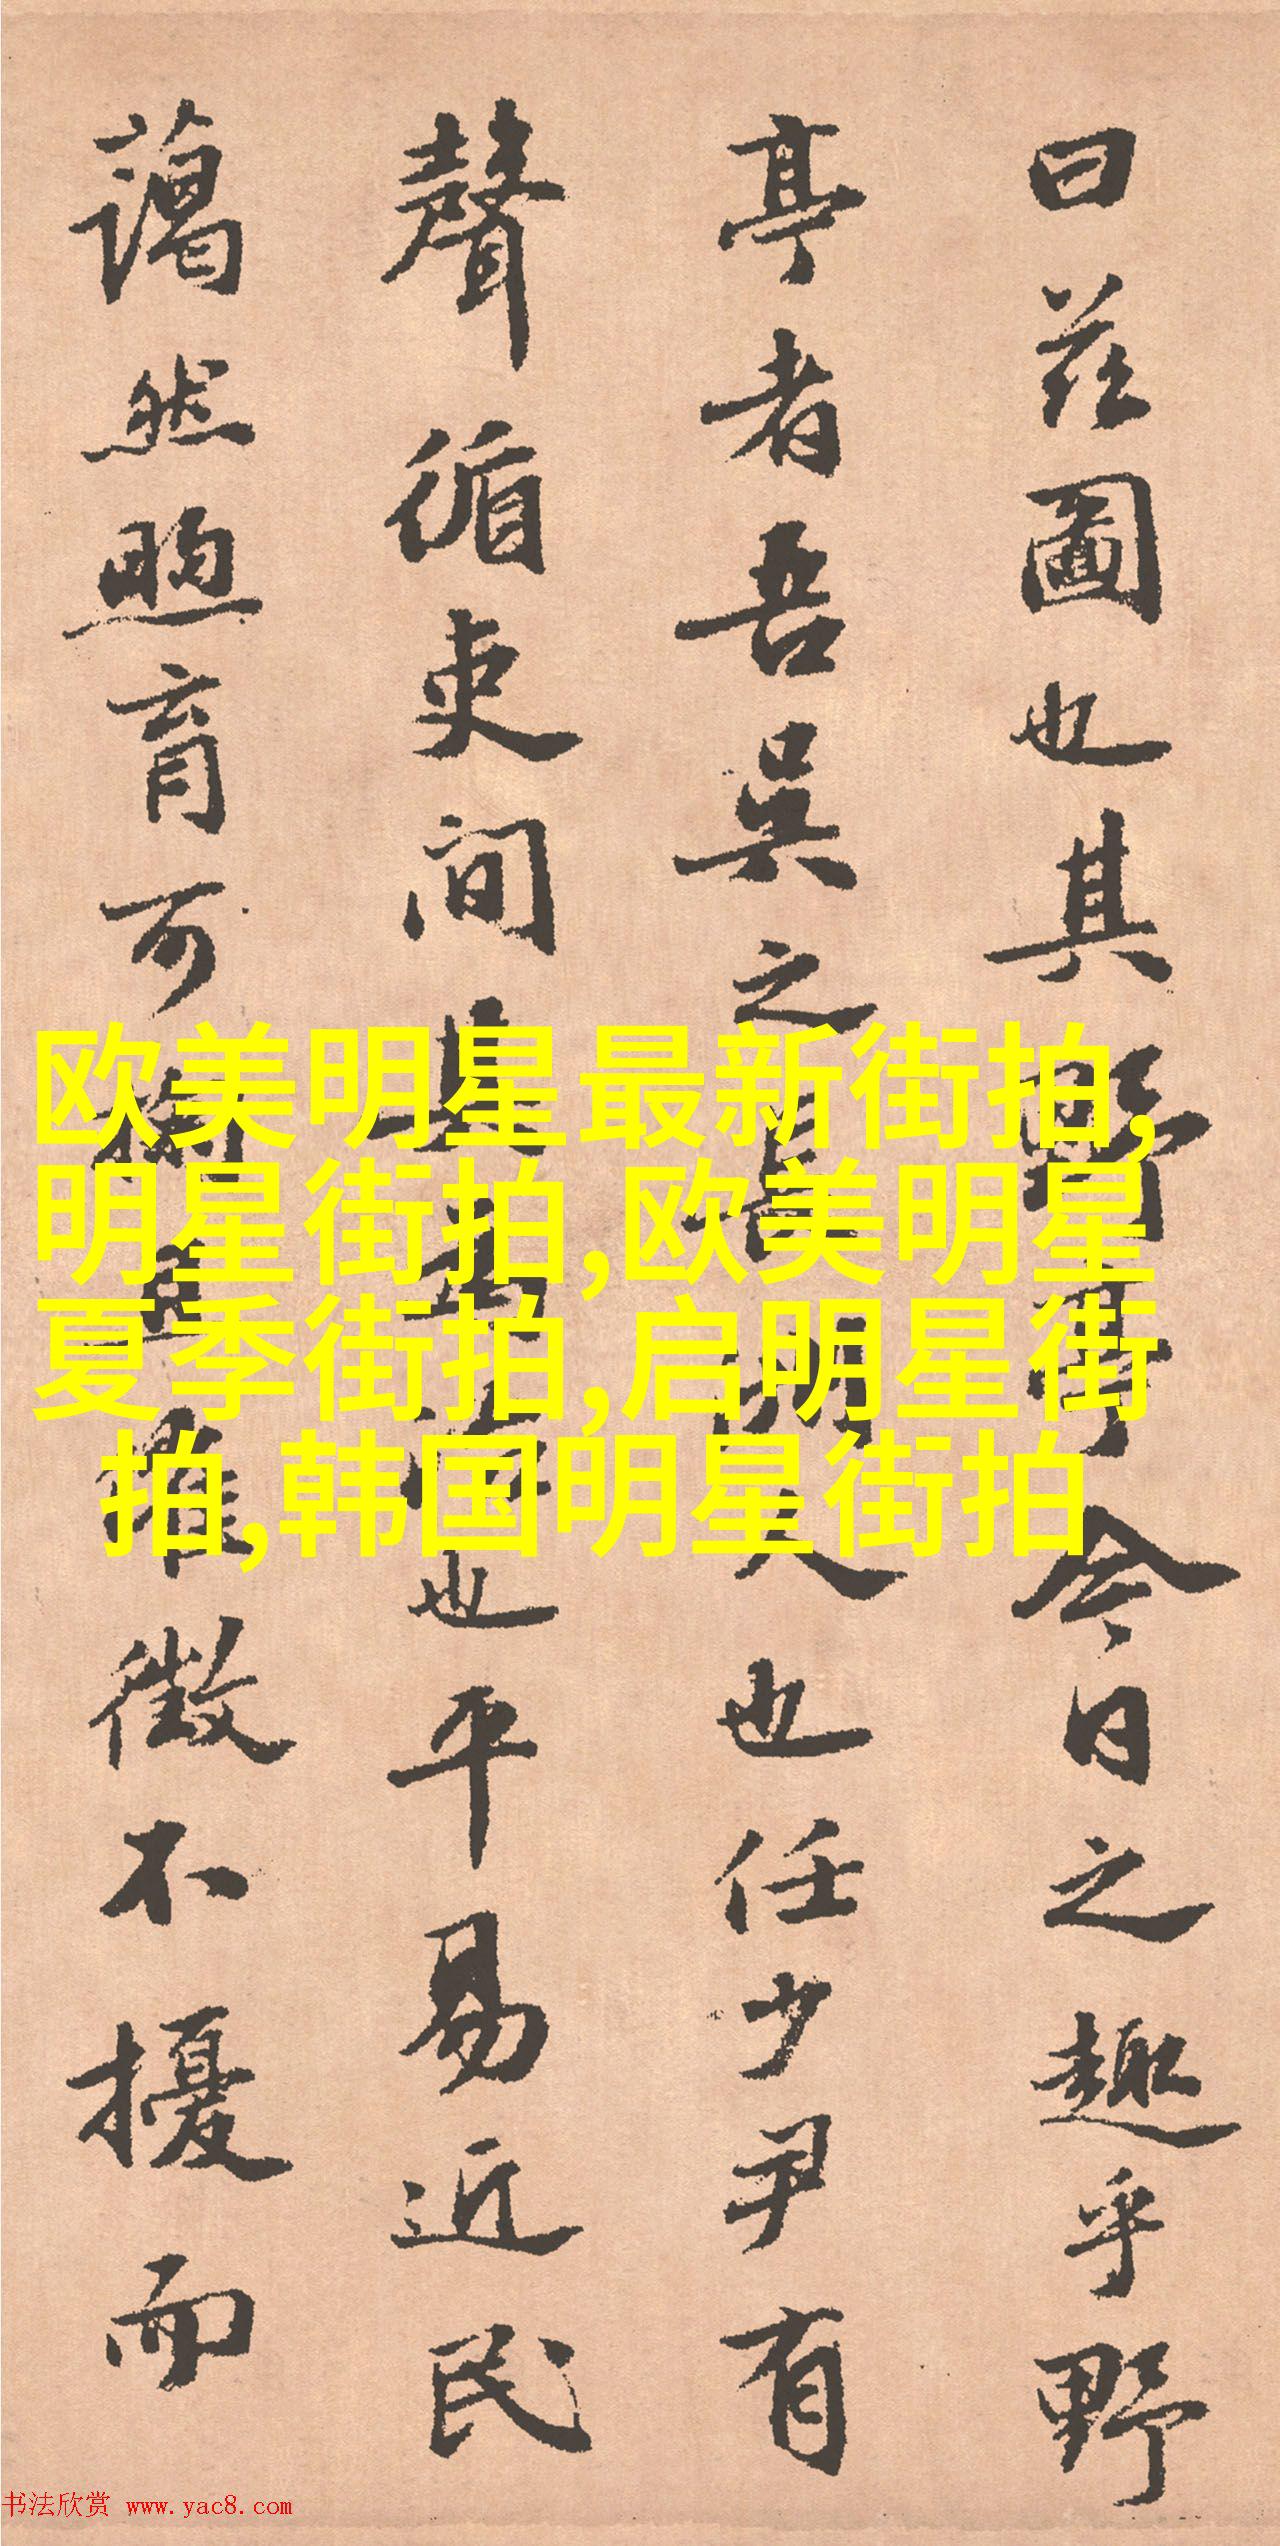 曰茲圖也其野亭今日之趣乎野
亭者吾吳之長洲人也任少尹有
聲循吏間其為治也平易近民
藹然煦育可掬至催徵不擾而
欧美明星最新街拍,
明星街拍,欧美明星
夏季街拍,启明星街
拍,韩国明星街拍
书法欣赏 www.yac8.com